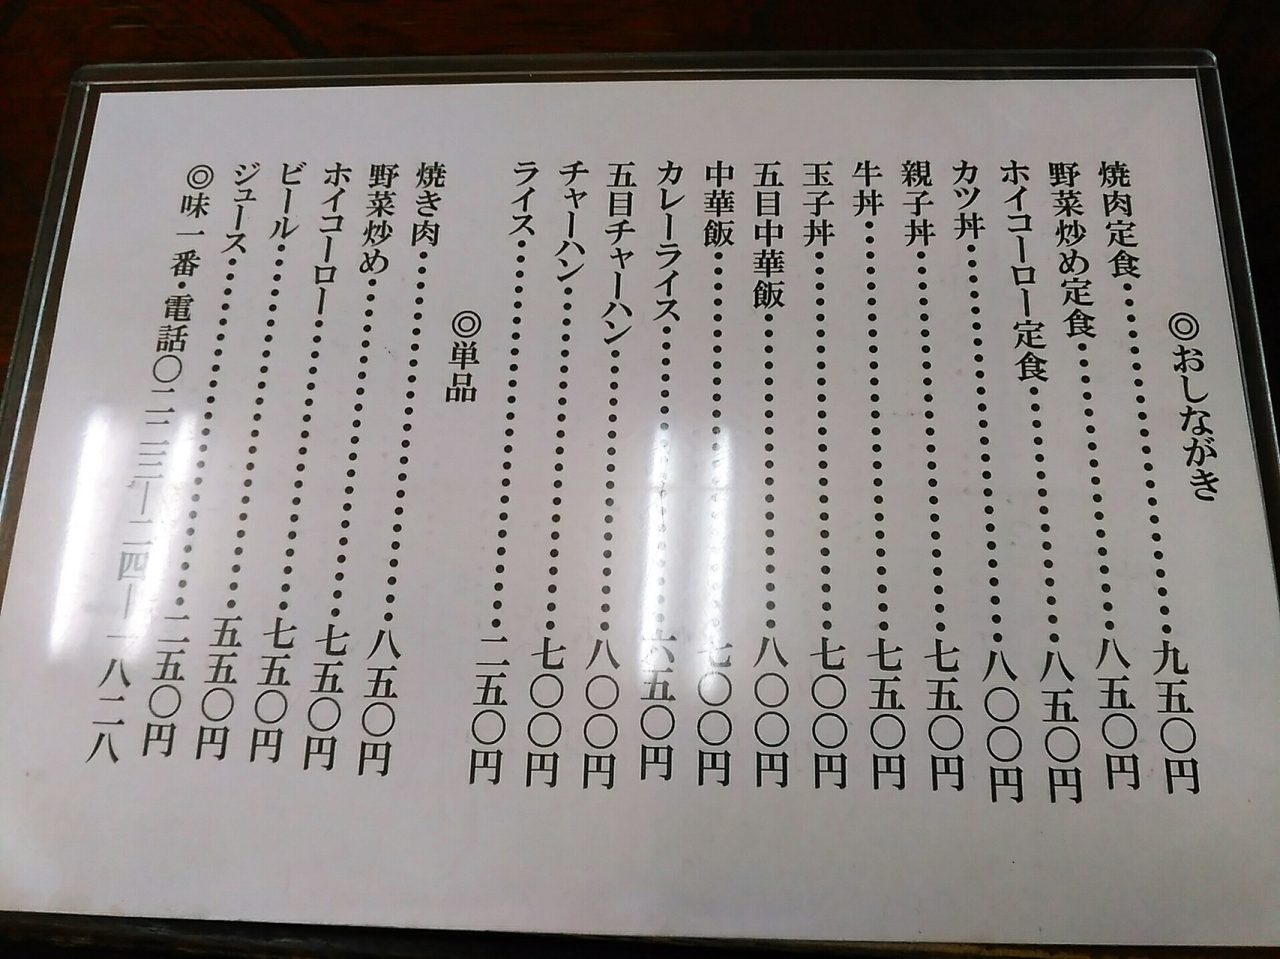 ◎おしながき
焼肉定食………………………九五〇円
野菜炒め定食……………………八五〇円
ホイコーロー定食…………………八五〇円
カツ丼…………………………八〇〇円
親子丼…………………………七五〇円
牛丼……………………………七五〇円
玉子丼…………………………七〇〇円
五目中華飯………………………八〇〇円
中華飯…………………………七〇〇円
カレーライス……………………六五〇円
五目チャーハン…………………八〇〇円
チャーハン………………………七〇〇円
ライス…………………………二五〇円
◎単品
焼き肉…………………………八五〇円
野菜炒め………………………七五〇円
ホイコーロー……………………七五〇円
ビール…………………………五五〇円
ジュース………………………二五〇円
◎味一番・電話〇二二三―二四―一八二八